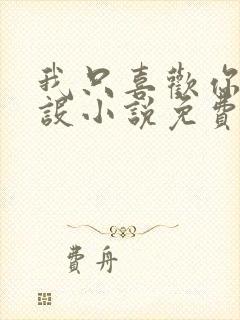 我只喜歡你
設小說免費
費舟